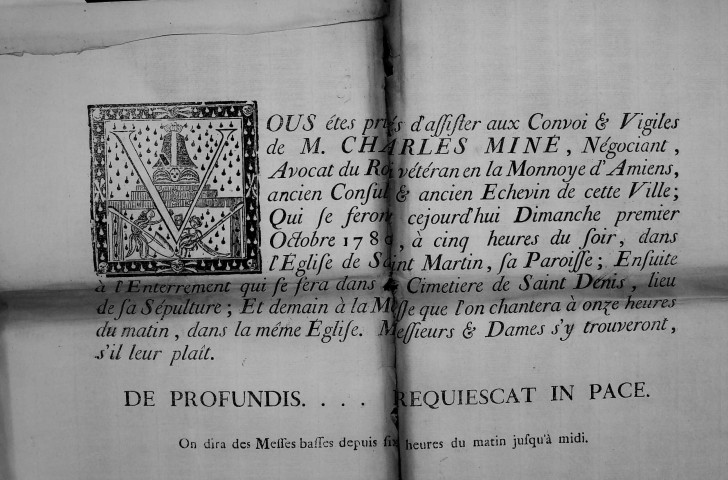 VOUS étes priés d'assister aux Convoi & Vigiles
de M. CHARLES MINÉ, Négociant,
Avocat du Roi vétéran en la Monnoye d'Amiens,
ancien Consul & ancien Echevin de cette Ville;
Qui se feront cejourd'hui Dimanche premier
Octobre 1780, à cinq heures du soir, dans
l'Église de Saint Martin, sa Paroisse; Ensuite
à l'Enterrement qui se fera dans le Cimetiere de Saint Denis, lieu
de sa Sépulture; Et demain à la Messe que l'on chantera à onze heures
du matin, dans la même Église. Messieurs & Dames s'y trouveront,
s'il leur plaît.
DE PROFUNDIS. . . . REQUIESCAT IN PACE.
On dira des Messes basses depuis six heures du matin jusqu'à midi.